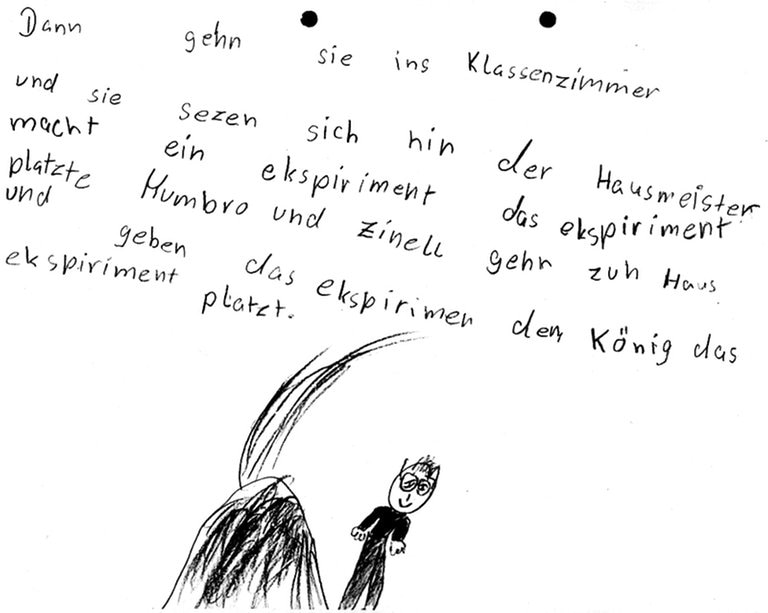 Dann gehn sie ins Klassenzimmer
und sie sezen sich hin der Hausmeister
macht ein ekspiriment das ekspiriment
platzte Kumbro und zinell gehn zuh Haus
und geben das ekspirimen dem König das
ekspiriment platzt.